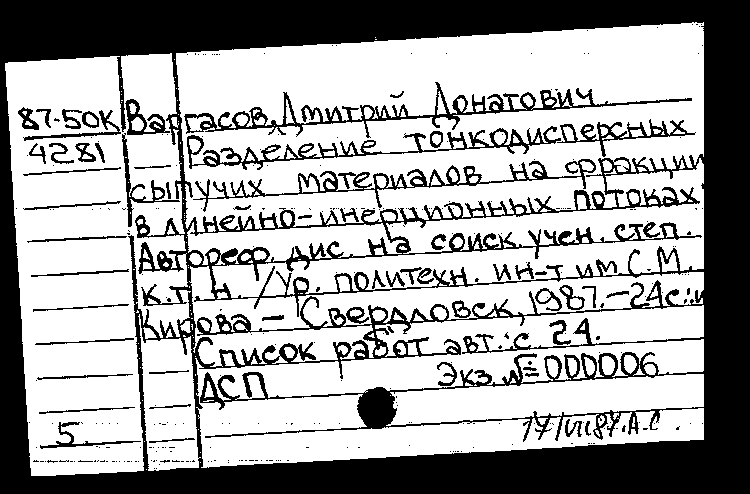 87-50К Варгасов, Дмитрий Донатович.
4281 Разделение тонкодисперсных
сыпучих материалов на фракции
в линейно-инерционных потоках:
Автореф. дис. на соиск. учен. степ.
к.т.н. / Ур. политехн. ин-т им С.М.
Кирова. - Свердловск, 1987. - 24с.: и
Список работ авт.: с 24.
ДСП Экз. № 000006
5. 17/VII 87. А.С.